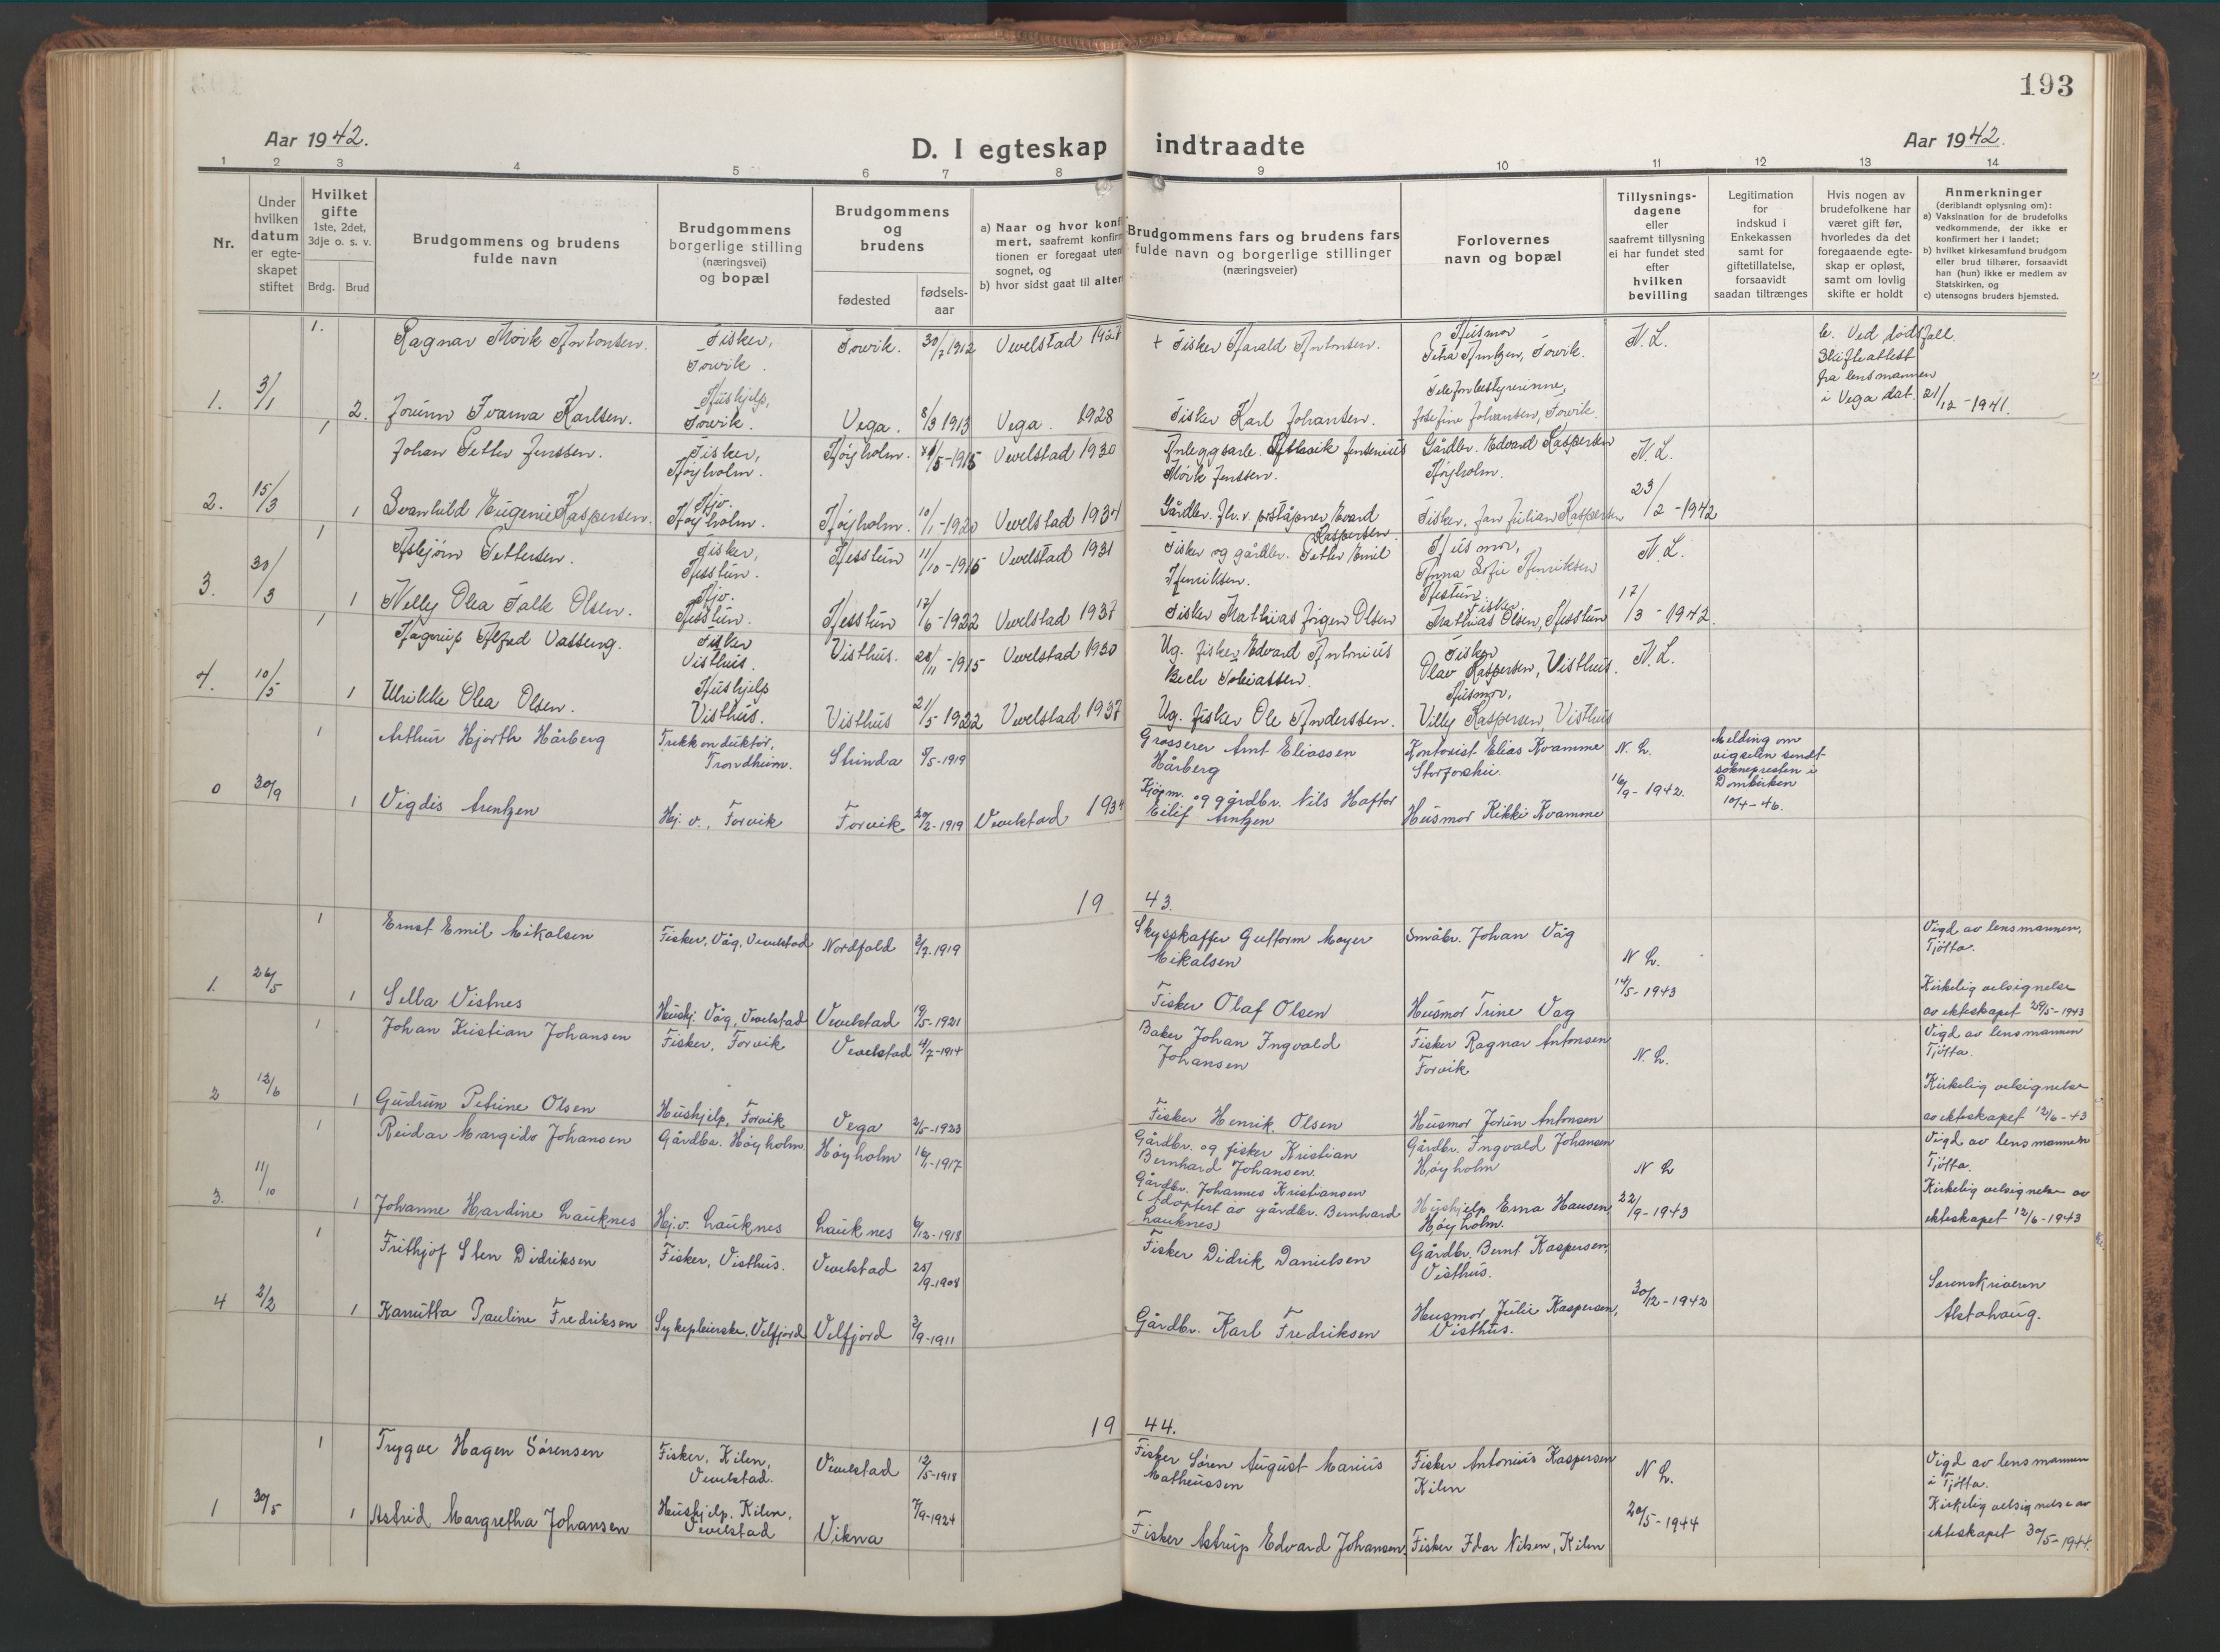 193
Aar 1942.
D. I egteskap indtraadte
Aar 1942.
1 2 3 4 5 6 7 8 9 10 11 12 13 14
Nr.
Under hvilken datum er egteskapet stiftet
Hvilket gifte 1ste, 2det, 3dje o. s. v.
Brdg. Brud
Brudgommens og brudens fulde navn
Brudgommens borgerlige stilling (næringsvei) og bopæl
Brudgommens og brudens
fødested
fødsels-aar
a) Naar og hvor konf
mert, saafremt konfirm
tionen er foregaat uten
sognet, og
b) hvor sidst gaat til alter
Brudgommens fars og brudens fars
fulde navn og borgerlige stillinger
(næringsveier)
Forlovernes
navn og bopæl
Tillysnings-
dagene
eller
saafremt tillysning
ei har fundet sted
efter
hvilken
bevilling
Legitimation
for
indskud i
Enkekassen
samt for
giftetillatelse,
forsaavidt
saadan tiltrænges
Hvis nogen av
brudefolkene har
været gift før,
hvorledes da det
foregaaende egte-
skap er opløst,
samt om lovlig
skifte er holdt
Anmerkninger
(deriblandt oplysning om):
a) Vaksination for de brudefolks
vedkommende, der ikke er
konfirmert her i landet;
b) hvilket kirkesamfund brudgom
eller brud tilhører, forsaavidt
han (hun) ikke er medlem av
Statskirken, og
c) utensogns bruders hjemsted.
1. Ragnar Mörk Antonsen. Fisker, Forvik. Forvik. 30/7 1912 Vevelstad 1927 + Fisker Harald Antonsen. Husmor Petra Arntzen, Forvik. N.L.
b. Ved dödsfall.
Skifteattest
fra lensmannen
i Vega dat. 21/12-1941.
1. 3/1 2. Jorunn Ivarna Karlsen. Hushjelp, Forvik. Vega. 8/3 1913 Vega. 1928 Fisker Karl Johansen. Telefonbestyrerinne, Josefine Johansen, Forvik.
1 Johan Petter Jenssen. Fisker, Höyholm. Höyholm. /5-1915 Vevelstad 1930 Anleggsarb. Jentenius Mörk Jenssen. Gårdbr. Edvard Kaspersen Höyholm. N.L.
2. 15/3 1 Svanhild Eugenie Kaspersen. Hjv. Höyholm. Höyholm. 10/1-1920 Vevelstad 1934 Gårdbr. fhv. v. Evard Kaspersen. Fisker, Jan Julian Kaspersen 23/2-1942
1 Asbjörn Pettersen. Fisker, Hesstun. Hesstun 11/10-1915 Vevelstad 1931 Fisker og gårdbr. Petter Emil Henriksen. Husmor, Anna Sofie Henriksen Hestun. N.L.
3. 30/3 1 Nelly Olea Falk Olsen. Hjv. Hesstun. Hesstun 17/6-1922 Vevelstad 1937 Fisker Mathias Jörgen Olsen Fisker Mathias Olsen, Hesstun 17/3-1942.
1 Alfred Vasseng. Fisker Visthus. Visthus. 28/11-1915 Vevelstad 1930 Ug. fisker Edvard Antonius Bech Tobiassen. Fisker Olav Kaspersen, Visthus. N.L.
4. 10/5 1 Ulrikke Olea Olsen. Hushjelp Visthus. Visthus 21/5-1922 Vevelstad 1937 Ug. fisker Ole Anderssen. Husmor, Villy Kaspersen, Visthus
1 Arthur Hjorth Hårberg Trikkonduktør, Trondheim. Strinda /5-1919 Grosserer Arnt Eliassen Hårberg Kontorist Elias Kvamme Storforshei. N. L.
Melding om
vigselen sendt
soknepresten i
Domkirken
10/4-46.
0 30/9 1 Vigdis Arntzen Hj. v., Forvik Forvik 20/2-1919 Vevelstad 1934 Kjøpm. og gårdbr. Nils Haftor Eilif Arntzen Husmor Kikki Kvamme 16/9-1942.
19 43.
1 Ernst Emil Mikalsen Fisker, Våg, Vevelstad Nordfold 3/7-1919 Skysskaffer Guttorm Meyer Mikalsen Småbr. Johan Våg N L.
Vigd av lensmannen, Tjøtta.
1. 26/5 1 Selba Vistnes Hushj. Våg, Vevelstad Vevelstad 19/5-1921 Fisker Olaf Olsen Husmor Trine Vag 14/5-1943
Kirkelig velsignelse
av ekteskapet 29/5-1943
1 Johan Kristian Johansen Fisker, Forvik Vevelstad 4/7-1914 Baker Johan Ingvald Johansen Fisker Ragnar Antonsen Forvik N. L.
Vigd av lensmannen
Tjøtta.
2 12/6 1 Gudrun Petrine Olsen Hushjelp, Forvik Vega 2/5-1923 Fisker Henrik Olsen Husmor Jorun Antonsen
Kirkelig velsignelse
av ekteskapet 12/6-43
1 Reidar Margido Johansen Gårdbr. Höyholm. Höyholm 16/1-1917 Gårdbr. og fisker Kristian Bernhard Johansen. Gårdbr. Ingvald Johansen Höyholm N L
Vigd av lensmannen
Tjøtta.
3. 11/10 1 Johanne Hardine Lauknes Hj.v. Lauknes Lauknes 6/12-1918 Gårdbr. Johannes Kristiansen (Adoptert av gårdbr. Bernhard Lauknes) Hushjelp Erna Hansen Höyholm. 22/9-1943
Kirkelig velsignelse av
ekteskapet 12/6-1943
1 Frithjof Sten Didriksen Fisker, Visthus. Vevelstad 25/9-1908 Fisker Didrik Danielsen Gårdbr. Bernt Kaspersen, Visthus.
4 2/2 1 Kanutta Pauline Fredriksen Sykepleierske, Velfjord Velfjord 3/9-1911 Gårdbr. Karl Fredriksen Husmor Julie Kaspersen, Visthus. 30/12-1942
Sorenskriveren
Alstahaug.
19 44.
1 Trygve Hagen Sørensen Fisker, Kilen, Vevelstad. Vevelstad 12/5-1918 Fisker Søren August Marius Matheussen Fisker Antonius Kaspersen Kilen N L.
Vigd av lensmannen
i Tjøtta.
1 30/5 1 Astrid Margretha Johansen Hushjelp, Kilen, Vevelstad Vikna 7/9-1924 Fisker Astrup Edvard Johansen. Fisker Idar Nilsen, Kilen 20/5-1944
Kirkelig velsignelse av
ekteskapet 30/5-1944.